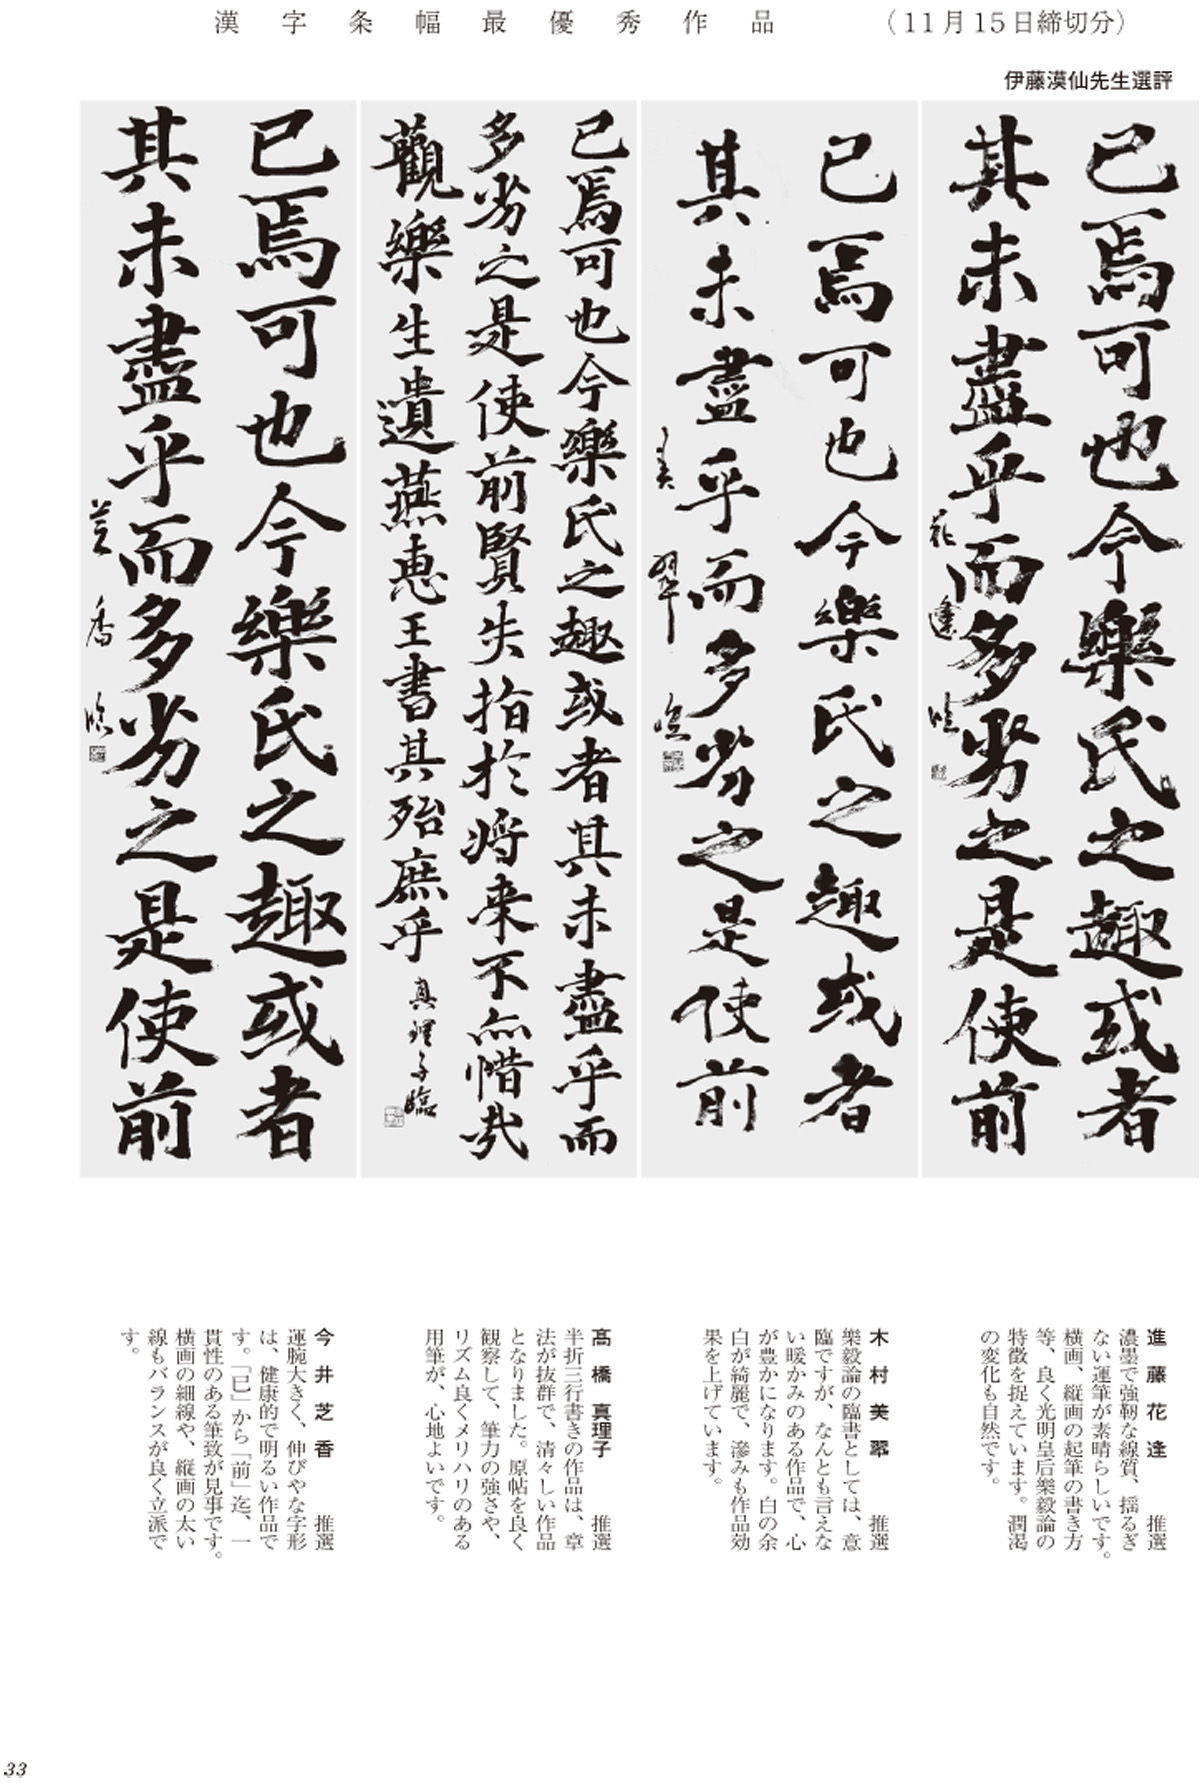 漢字条幅最優秀作品 （11月15日締切分）
伊藤漠仙先生選評
已焉可也今樂氏之趣或者
其未盡乎而多劣之是使前
花逢臨
已焉可也今樂氏之趣或者
其未盡乎而多劣之是使前
美翠臨
已焉可也今樂氏之趣或者其未盡乎而
多劣之是使前賢失指於将来不亦惜哉
觀樂生遺燕惠王書其殆庶乎
真理子臨
已焉可也今樂氏之趣或者
其未盡乎而多劣之是使前
芝香臨
進藤花逢 推選
濃墨で強靭な線質、揺るぎ
ない運筆が素晴らしいです。
横画、縦画の起筆の書き方
等、良く光明皇后樂毅論の
特徴を捉えています。潤渇
の変化も自然です。
木村美翠 推選
樂毅論の臨書としては、意
臨ですが、なんとも言えな
い暖かみのある作品で、心
が豊かになります。白の余
白が綺麗で、滲みも作品効
果を上げています。
髙橋真理子 推選
半折三行書きの作品は、章
法が抜群で、清々しい作品
となりました。原帖を良く
観察して、筆力の強さや、
リズム良くメリハリのある
用筆が、心地よいです。
今井芝香 推選
運腕大きく、伸びやな字形
は、健康的で明るい作品で
す。「已」から「前」迄、一
貫性のある筆致が見事です。
横画の細線や、縦画の太い
線もバランスが良く立派で
す。
33